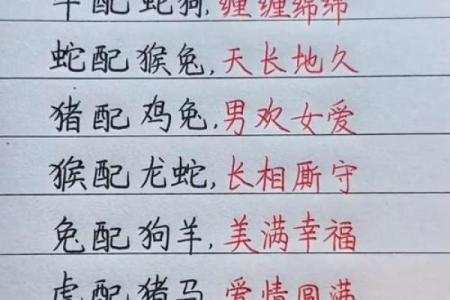 牛配蛇狗,缠缠绵绵
蛇配猴兔,天长地久
猪配鸡兔,男欢女爱
猴配龙蛇,长相厮守
兔配狗羊,美满幸福
虎配猪马,爱情圆满